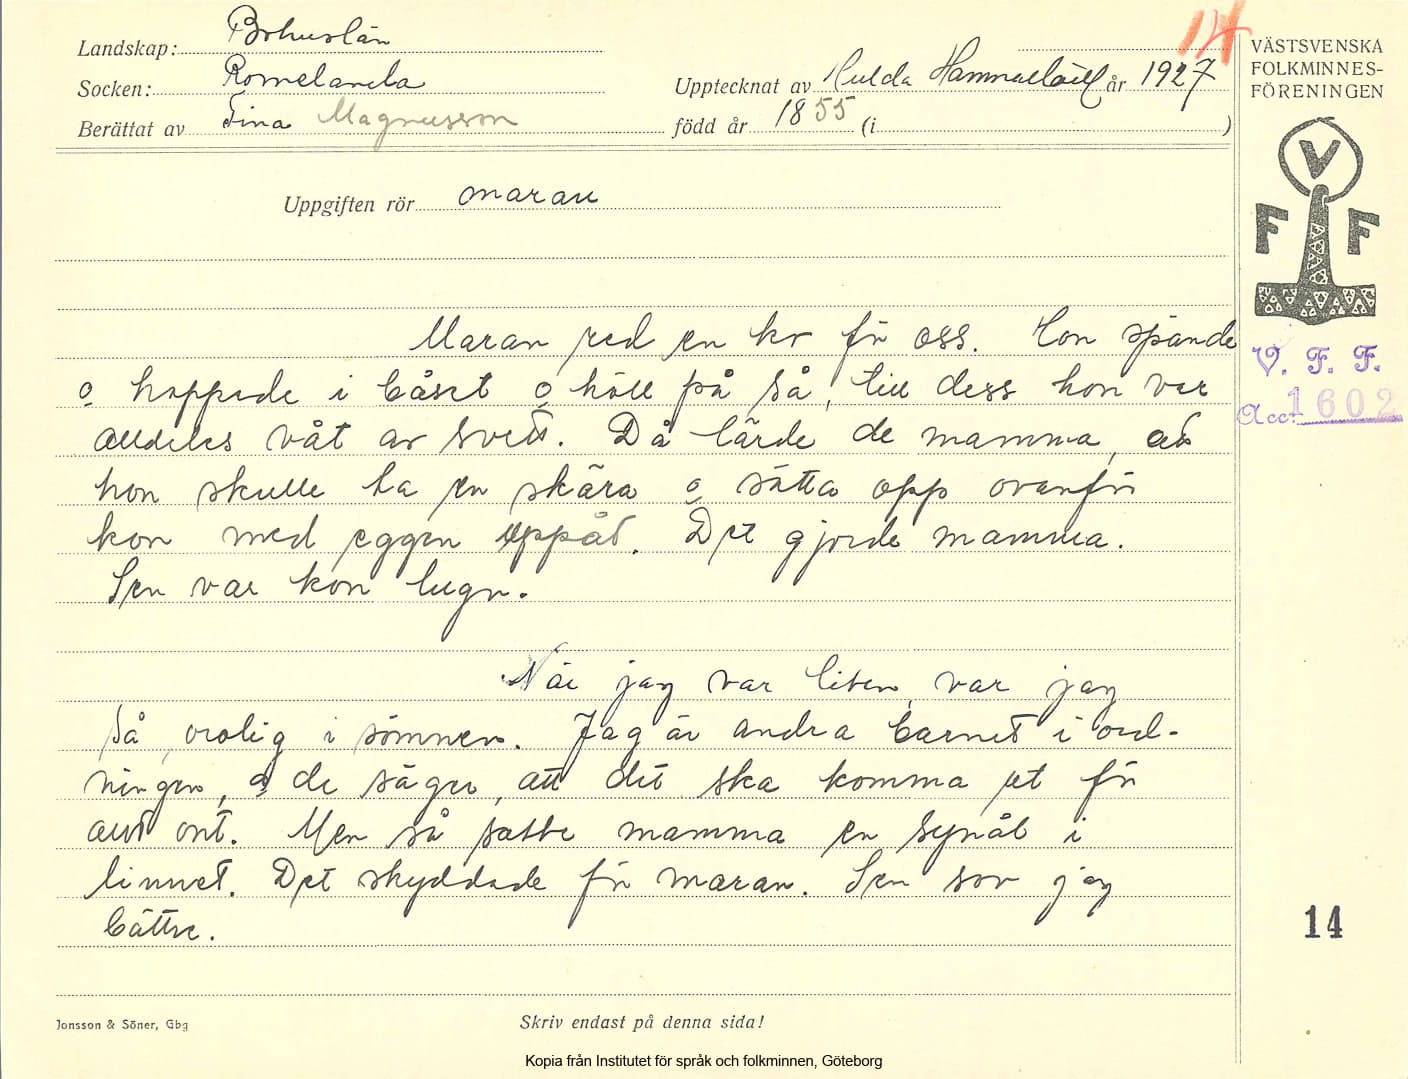 14
Landskap: Bohuslän
Socken: Romelanda
Upptecknat av Hulda Hammarbäck år 1927
Berättat av Tina Magnusson
född år 1855 (i )
VÄSTSVENSKA
FOLKMINNES-
FÖRENINGEN
V
F F
V. F. F.
Acc. 1602
Uppgiften rör maran
Maran red en ko för oss. Hon spände
o hoppade i båset o höll på så, till dess hon var
alldeles våt av svett. Då lärde de mamma, att
hon skulle ta en skära o sätta opp ovanför
kon med eggen uppåt. Det gjorde mamma.
Sen var kon lugn.
När jag var liten, var jag
så orolig i sömnen. Jag är andra barnet i ord-
ningen, o de säger, att det ska komma ut för
allt ont. Men så satte mamma en synål i
linnet. Det skyddade för maran. Sen sov jag
bättre.
14
Jonsson & Söner, Gbg
Skriv endast på denna sida!
Kopia från Institutet för språk och folkminnen, Göteborg